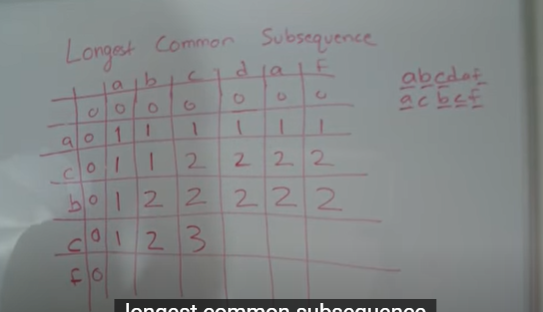 Longest Common Subsequence
a b c d a f
0 0 0 0 0 0 0
a 0 1 1 1 1 1 1
c 0 1 1 2 2 2 2
b 0 1 2 2 2 2 2
c 0 1 2 3
f 0
abcdaf
acbcf
longest common subsequence